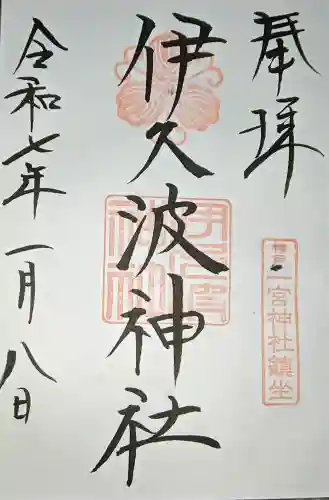 奉拝
伊久波神社
令和七年一月八日
宮神社鎮坐